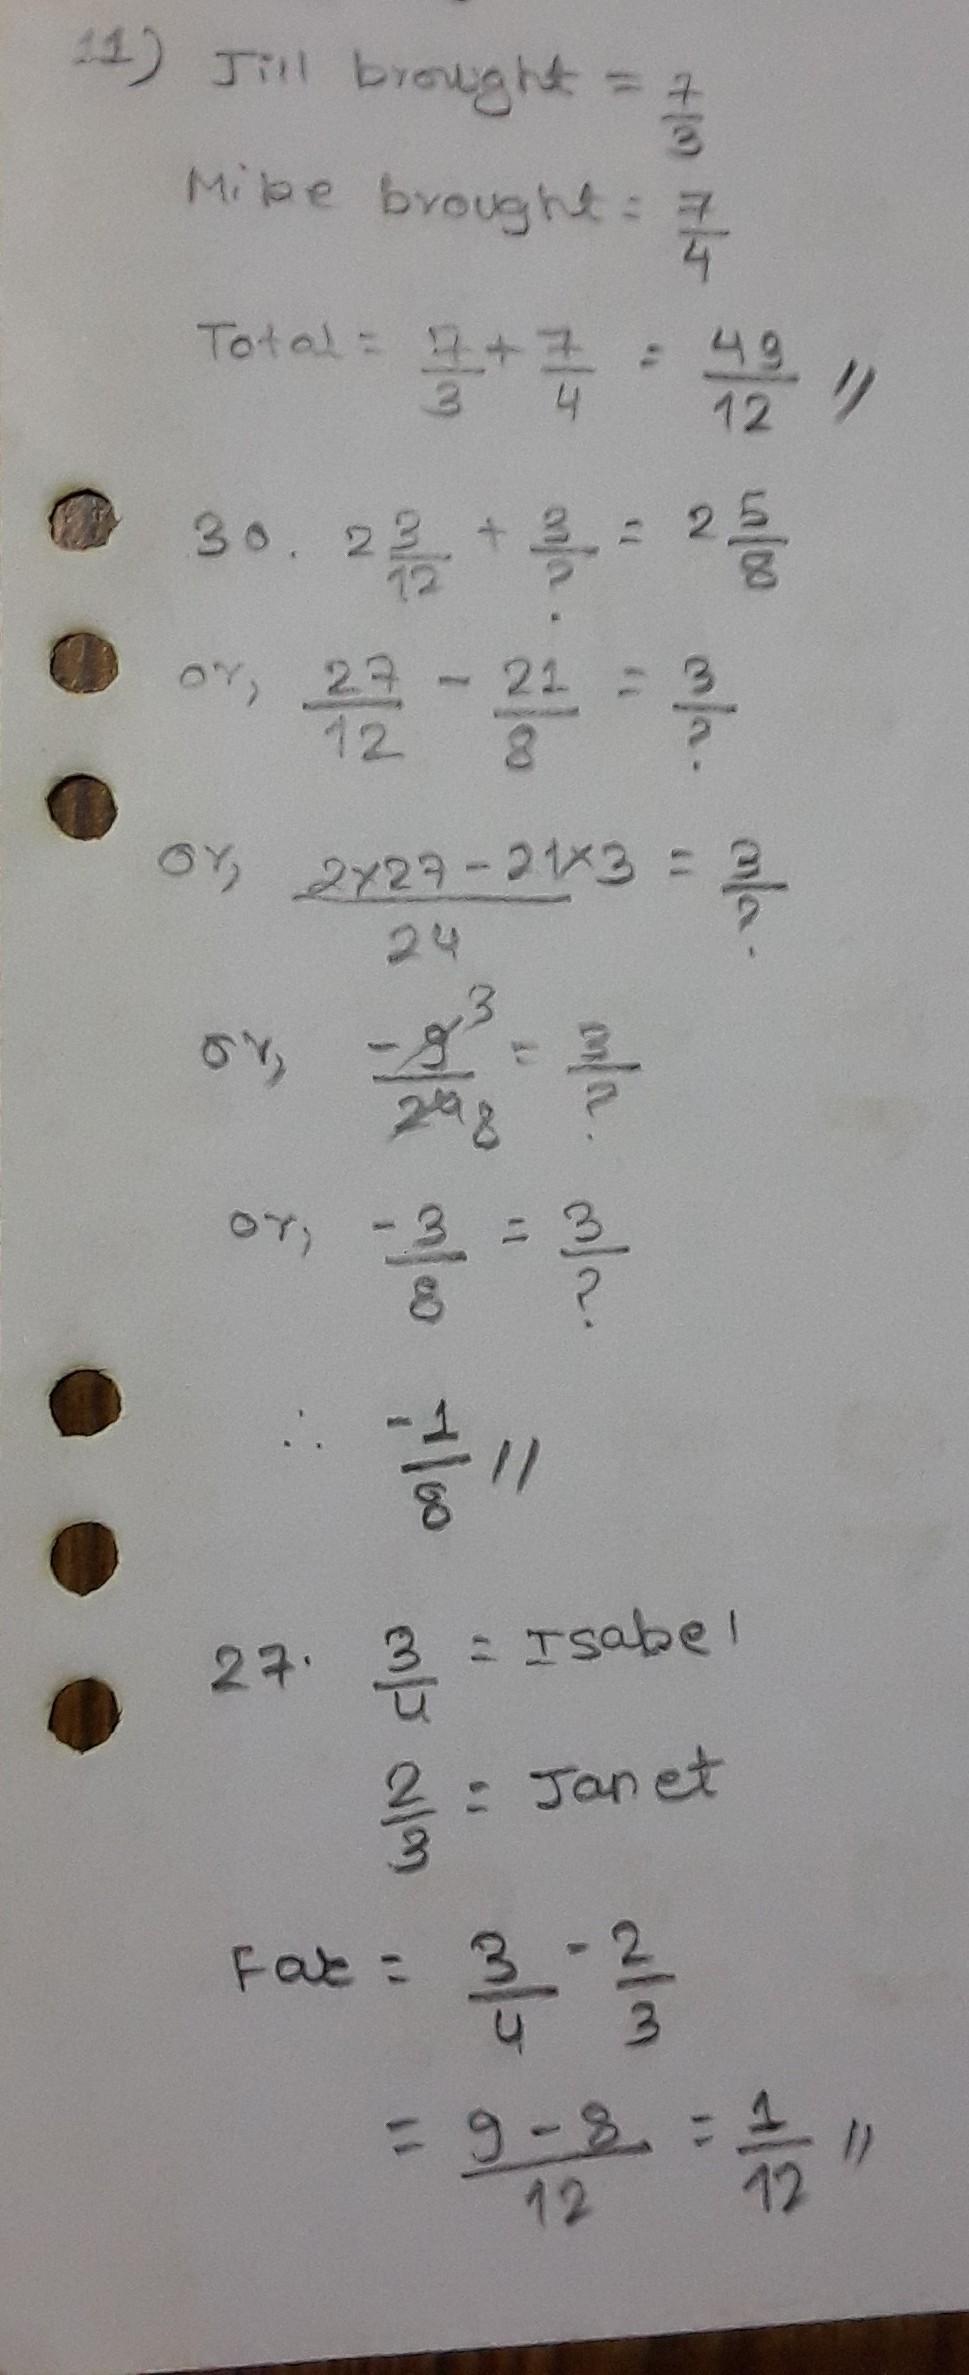 11) Jill brought = 7/3
Mike brought = 7/4
Total = 7/3 + 7/4 = 49/12 //
30. 2 3/12 + 3/? = 2 5/8
or, 27/12 - 21/8 = 3/?
or, 2×27-21×3/24 = 3/?
or, -9 3/24 8 = 3/?
or, -3/8 = 3/?
∴ -1/8 //
27. 3/4 = Isabel
2/3 = Janet
Fat = 3/4 - 2/3
= 9-8/12 = 1/12 //